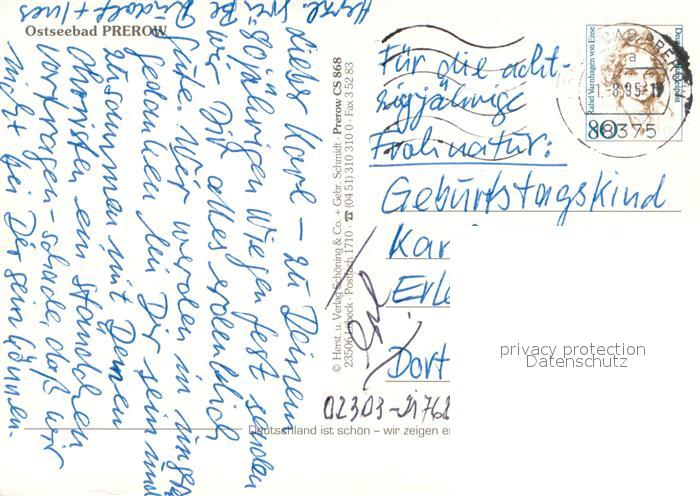 Ostseebad PREROW
Lieber Karl – zu Deinem
80jährigen Wiegenfest senden
wir Dir alles erdenklich
Gute. Wir werden in
Gedanken bei Dir sein und
zusammen mit Deinen
ein Ständchen
vortragen – schade, daß wir
nicht bei Dir sein können.
Herzl.
Rudolf + Ines
© Herst. u. Verlag Schöning & Co. + Gebr. Schmidt · Prerow CS 868
23506 Lübeck · Postfach 1710 · ☎ (04 51) 310 310 0 · Fax 3 52 83
Für die acht-
zigjährige
Frohnatur:
Geburtstagskind
Kar
Erle
Dort
02303-
Deutschland ist schön – wir zeigen e
Deutsche Bundespost
Rahel Varnhagen von Ense
80
-8.95-1
18375
privacy protection
Datenschutz